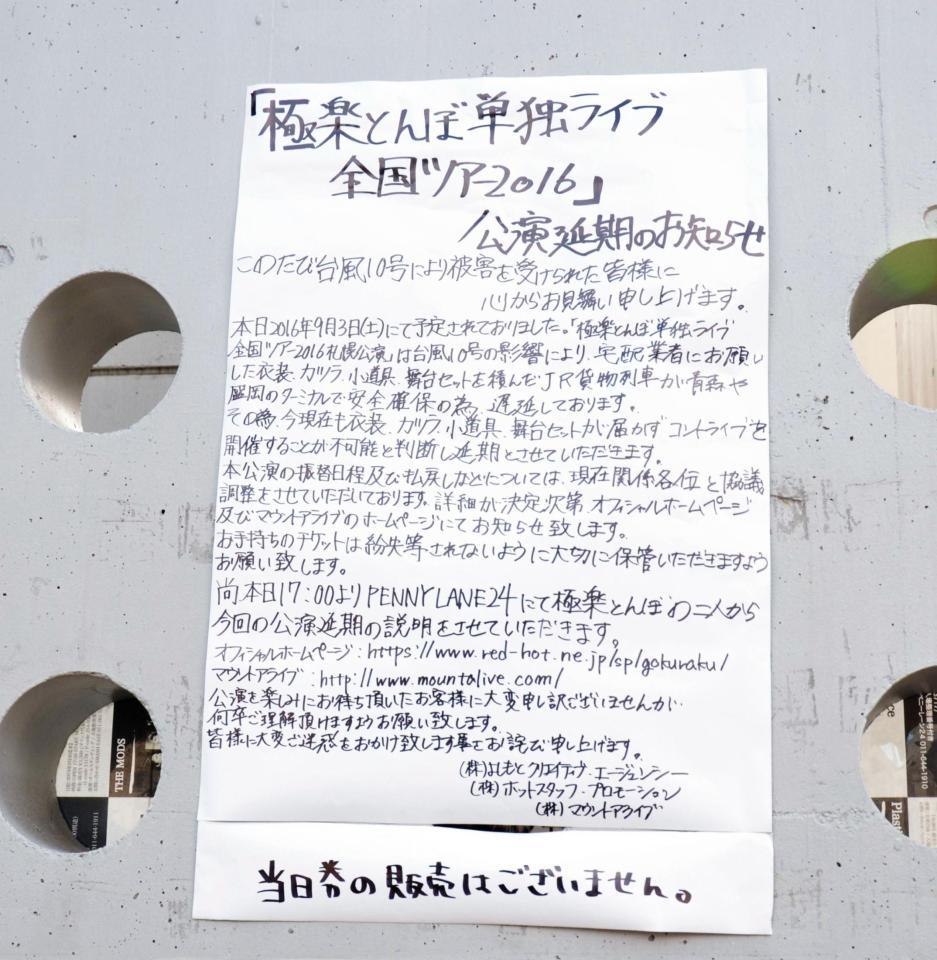 「極楽とんぼ単独ライブ
全国ツアー2016」
公演延期のお知らせ
このたび台風10号により被害を受けられた皆様に
心からお見舞い申し上げます。
本日2016年9月3日(土)にて予定されておりました。「極楽とんぼ単独ライブ
全国ツアー2016札幌公演」は台風10号の影響により、宅配業者にお願い
した衣装、カツラ、小道具、舞台セットを積んだJR貨物列車が青森や
盛岡のターミナルで安全確保の為、遅延しております。
その為、今現在も衣装、カツラ、小道具、舞台セットが届かずコントライブを
開催することが不可能と判断し延期とさせていただきます。
本公演の振替日程及び払戻しなどについては、現在関係各位と協議
調整をさせていただいております。詳細が決定次第オフィシャルホームページ
及びマウントアライブのホームページにてお知らせ致します。
お手持ちのチケットは紛失等されないように大切に保管いただきますよう
お願い致します。
尚本日17:00よりPENNY LANE24にて極楽とんぼの二人から
今回の公演延期の説明をさせていただきます。
オフィシャルホームページ:https://www.red-hot.ne.jp/sp/gokuraku/
マウントアライブ:http://www.mountalive.com/
公演を楽しみにお待ち頂いたお客様に大変申し訳ございませんが
何卒ご理解頂けますようお願い致します。
皆様に大変ご迷惑をおかけ致します事をお詫び申し上げます。
(株)よしもとクリエイティヴ・エージェンシー
(株)ホットスタッフ・プロモーション
(株)マウントアライブ
当日券の販売はございません。
THE MODS
011-644-1910
Plast